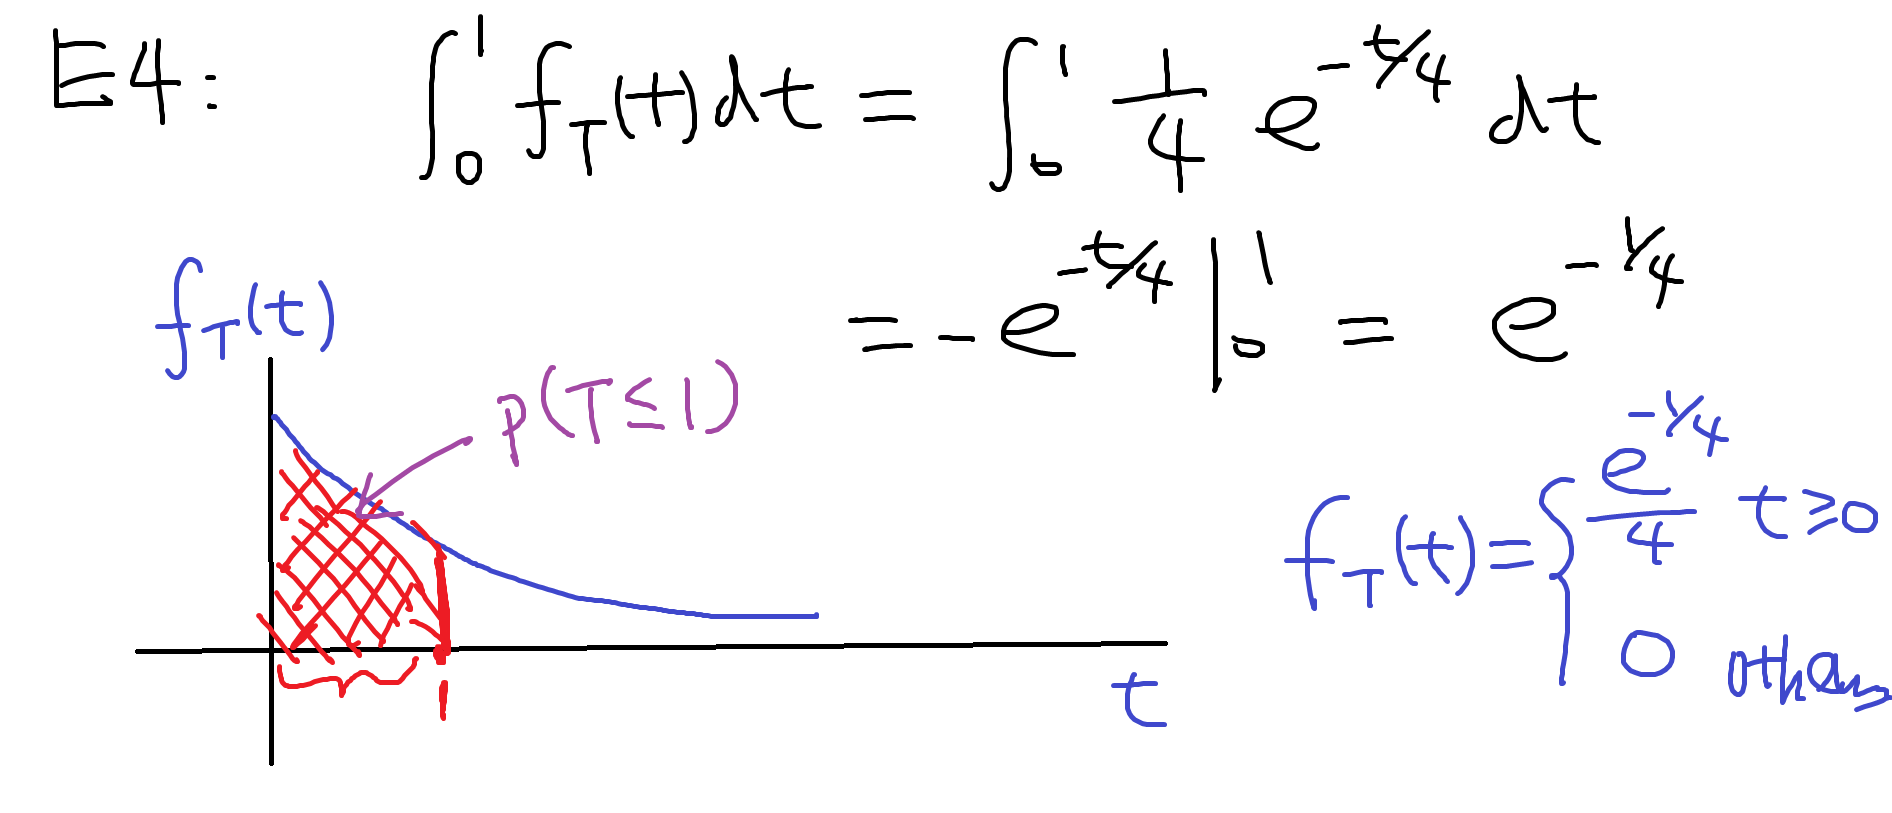 E4: ∫₀¹ f_T(t)dt = ∫₀¹ 1/4 e^(-t/4) dt
= -e^(-t/4) |₀¹ = e^(-1/4)
f_T(t)
p(T≤1)
f_T(t) = { e^(-1/4)/4 t≥0
0 others
1
t